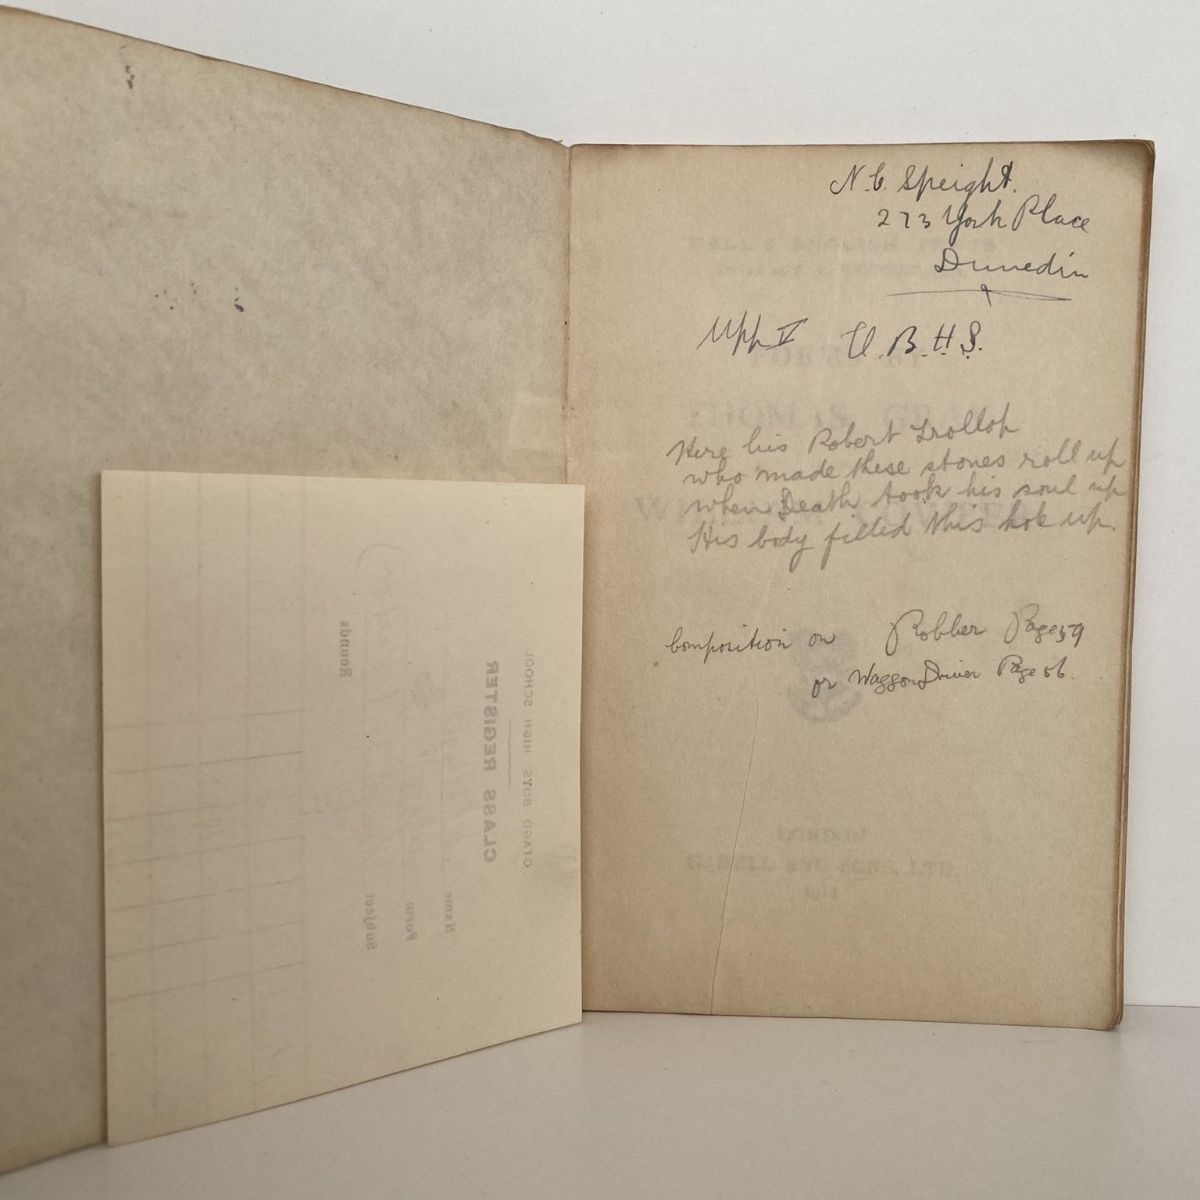 N. C. Speight.
273 York Place
Dunedin
Upp V O.B.H.S.
Here lies Robert Trollop
who made these stones roll up
when Death took his soul up
His body filled this hole up.
Composition on Robber Page 59
or Waggon Driver Page 56.
OTAGO BOYS HIGH SCHOOL
CLASS REGISTER
Name
Form
Subject
Rounds
POEMS BY
THOMAS GRAY
LONDON
G. BELL AND SONS, LTD.